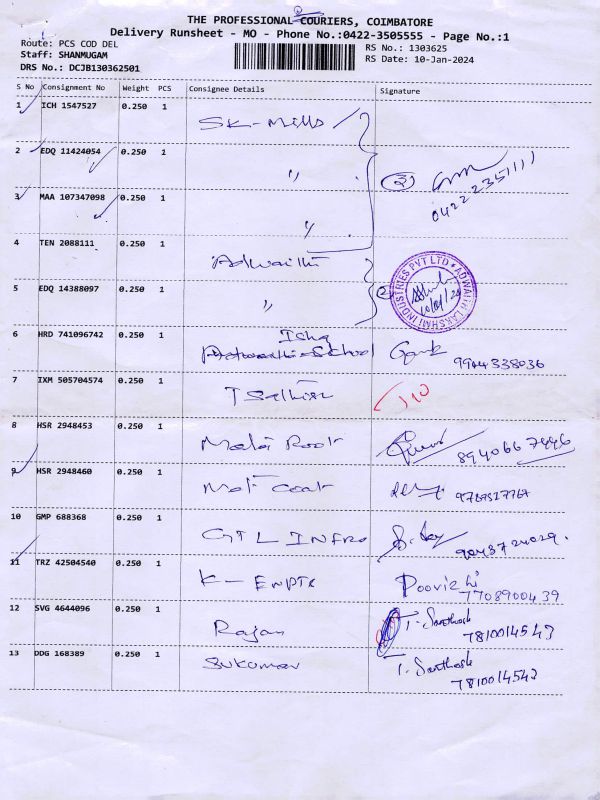 THE PROFESSIONAL COURIERS, COIMBATORE
Delivery Runsheet - MO - Phone No.:0422-3505555 - Page No.:1
Route: PCS COD DEL
RS No.: 1303625
Staff: SHANMUGAM
RS Date: 10-Jan-2024
DRS No.: DCJB130362501
S No Consignment No Weight PCS Consignee Details Signature
1 ICH 1547527 0.250 1 SK-Mills
2 EDQ 11424054 0.250 1 "
3 MAA 107347098 0.250 1 "
0422 2351111
4 TEN 2088111 0.250 1 Adwaith
5 EDQ 14388097 0.250 1 "
ADWAITH LAKSHMI INDUSTRIES PVT LTD
6 HRD 741096742 0.250 1 School 9944338036
7 IXM 505704574 0.250 1
8 HSR 2948453 0.250 1 8940667446
9 HSR 2948460 0.250 1 9787527767
10 GMP 688368 0.250 1 GTL INFRA 9043724029.
11 TRZ 42504540 0.250 1 Poovizhi
7708900439
12 SVG 4644096 0.250 1 Rajan T. Santhosh
7810014543
13 DDG 168389 0.250 1 Sukumar T. Santhosh
7810014543